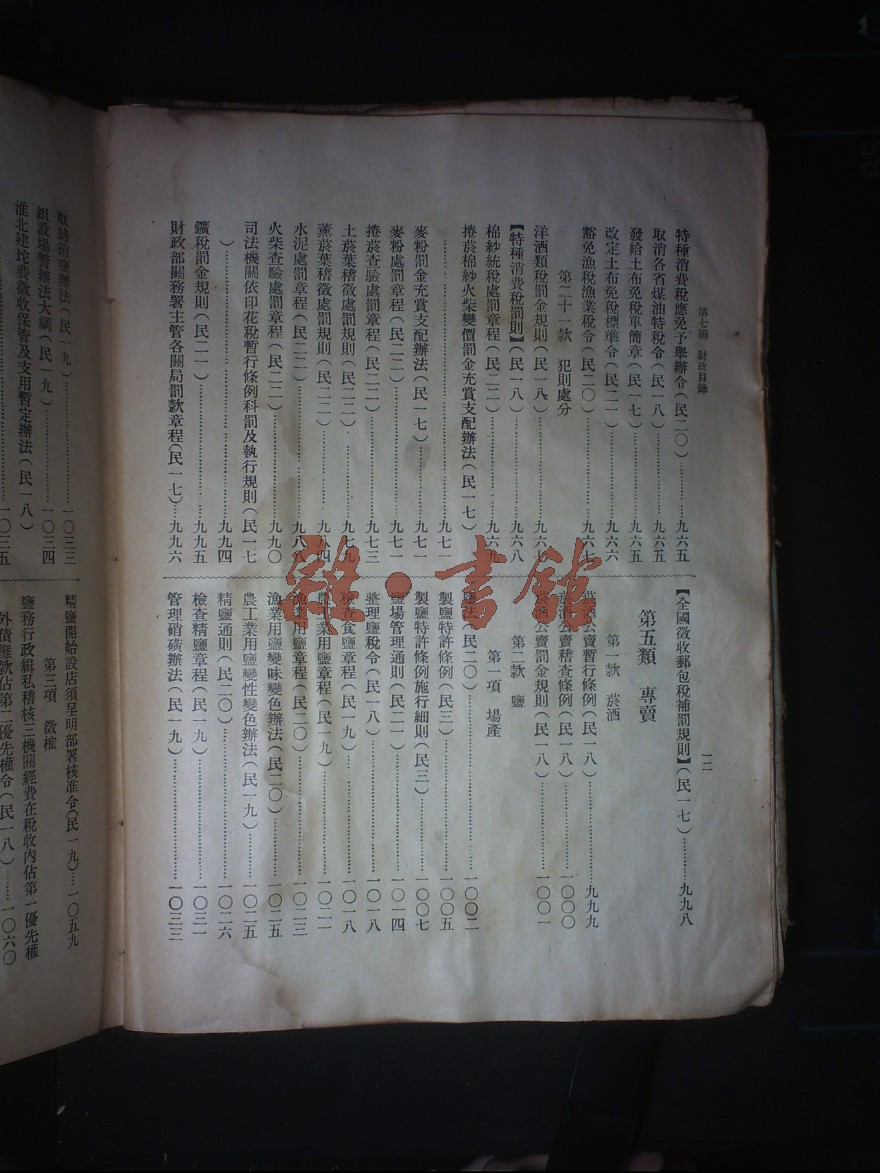 第七編　財政目錄
一二
特種消費稅應免予舉辦令(民二〇)………九六五
取消各省煤油特稅令(民一八)………九六五
發給土布免稅單簡章(民一七)………九六五
改定土布免稅標準令(民二一)………九六六
豁免漁稅漁業稅令(民二〇)………九六七
第二十一款　犯則處分
洋酒類稅罰金規則(民一八)………九六七
【特種消費稅罰則】(民一八)………九六八
棉紗統稅處罰章程(民二二)………九六九
捲菸棉紗火柴變價罰金充賞支配辦法(民一七)
………九七一
麥粉罰金充賞支配辦法(民一七)………九七一
麥粉處罰章程(民二二)………九七一
捲菸查驗處罰章程(民二二)………九七三
土菸葉稽徵處罰規則(民二二)………九七九
薰菸葉稽徵處罰規則(民二二)………九八四
水泥處罰章程(民二二)………九八八
火柴查驗處罰章程(民二二)………九九〇
司法機關依印花稅暫行條例科罰及執行規則(民一七
)………九九四
鑛稅罰金規則(民二一)………九九五
財政部關務署主管各關局罰款章程(民一七)…九九六
【全國徵收郵包稅補罰規則】(民一七)………九九八
第五類　專賣
第一款　菸酒
菸酒公賣暫行條例(民一八)………九九九
菸酒公賣稽查條例(民一八)………一〇〇〇
菸酒公賣罰金規則(民一八)………一〇〇一
第二款　鹽
第一項　場產
鹽法(民二〇)………一〇〇二
製鹽特許條例(民三)………一〇〇五
製鹽特許條例施行細則(民三)………一〇〇七
鹽場管理通則(民二一)………一〇一四
整理鹽稅令(民一八)………一〇一八
檢查食鹽章程(民一九)………一〇一八
農工業用鹽章程(民一九)………一〇二一
漁業用鹽章程(民二〇)………一〇二三
漁業用鹽變味變色辦法(民二〇)………一〇二五
農工業用鹽變性變色辦法(民一九)………一〇二五
精鹽通則(民二〇)………一〇二六
檢查精鹽章程(民一九)………一〇三一
管理硝磺辦法(民一九)………一〇三三
取締硝鹽辦法(民一九)………一〇三三
組設場警辦法大綱(民一九)………一〇三四
淮北建坨費徵收保管及支用暫定辦法(民一八)
………一〇三五
精鹽開始設店須呈明部署核准令(民一九)…一〇五九
第三項　徵榷
鹽務行政緝私稽核三機關經費在稅收內佔第一優先權
外債攤款佔第二優先權令(民一八)……一〇六〇
雜·書館